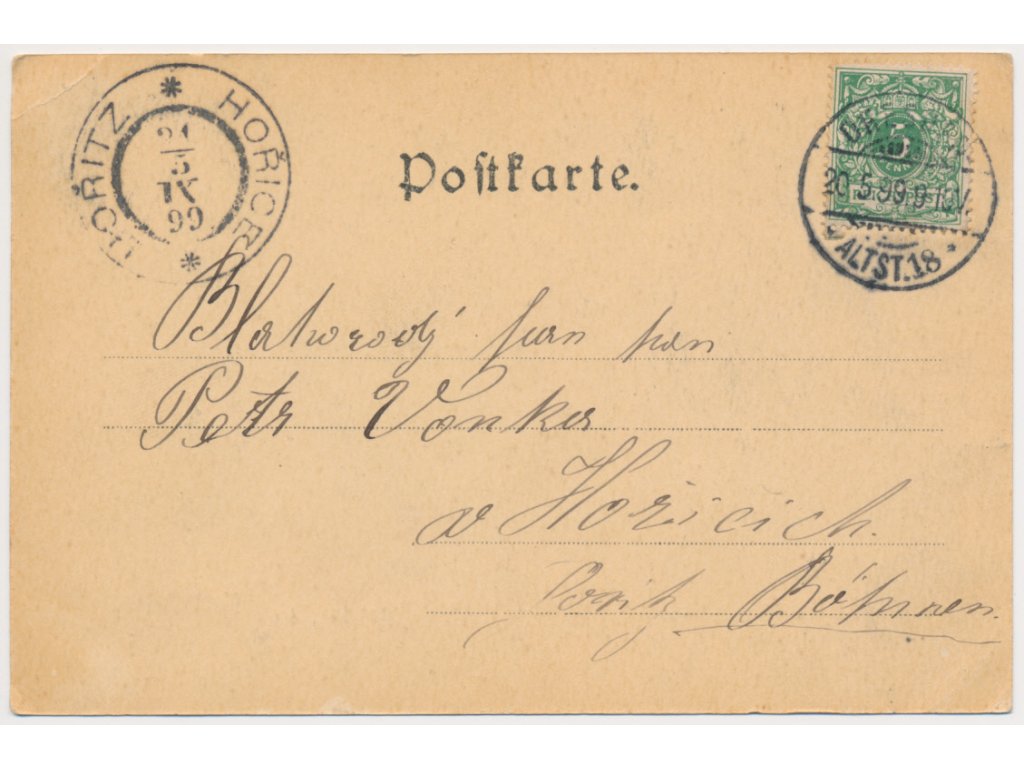 HOŘITZ * HOŘICE *
21
5
IX
99
Postkarte.
5
20.5.99.9-10V
* ALTST.18 *
Blahorodý pan pan
Petr Vonka
v Hořicích.
Böhmen.